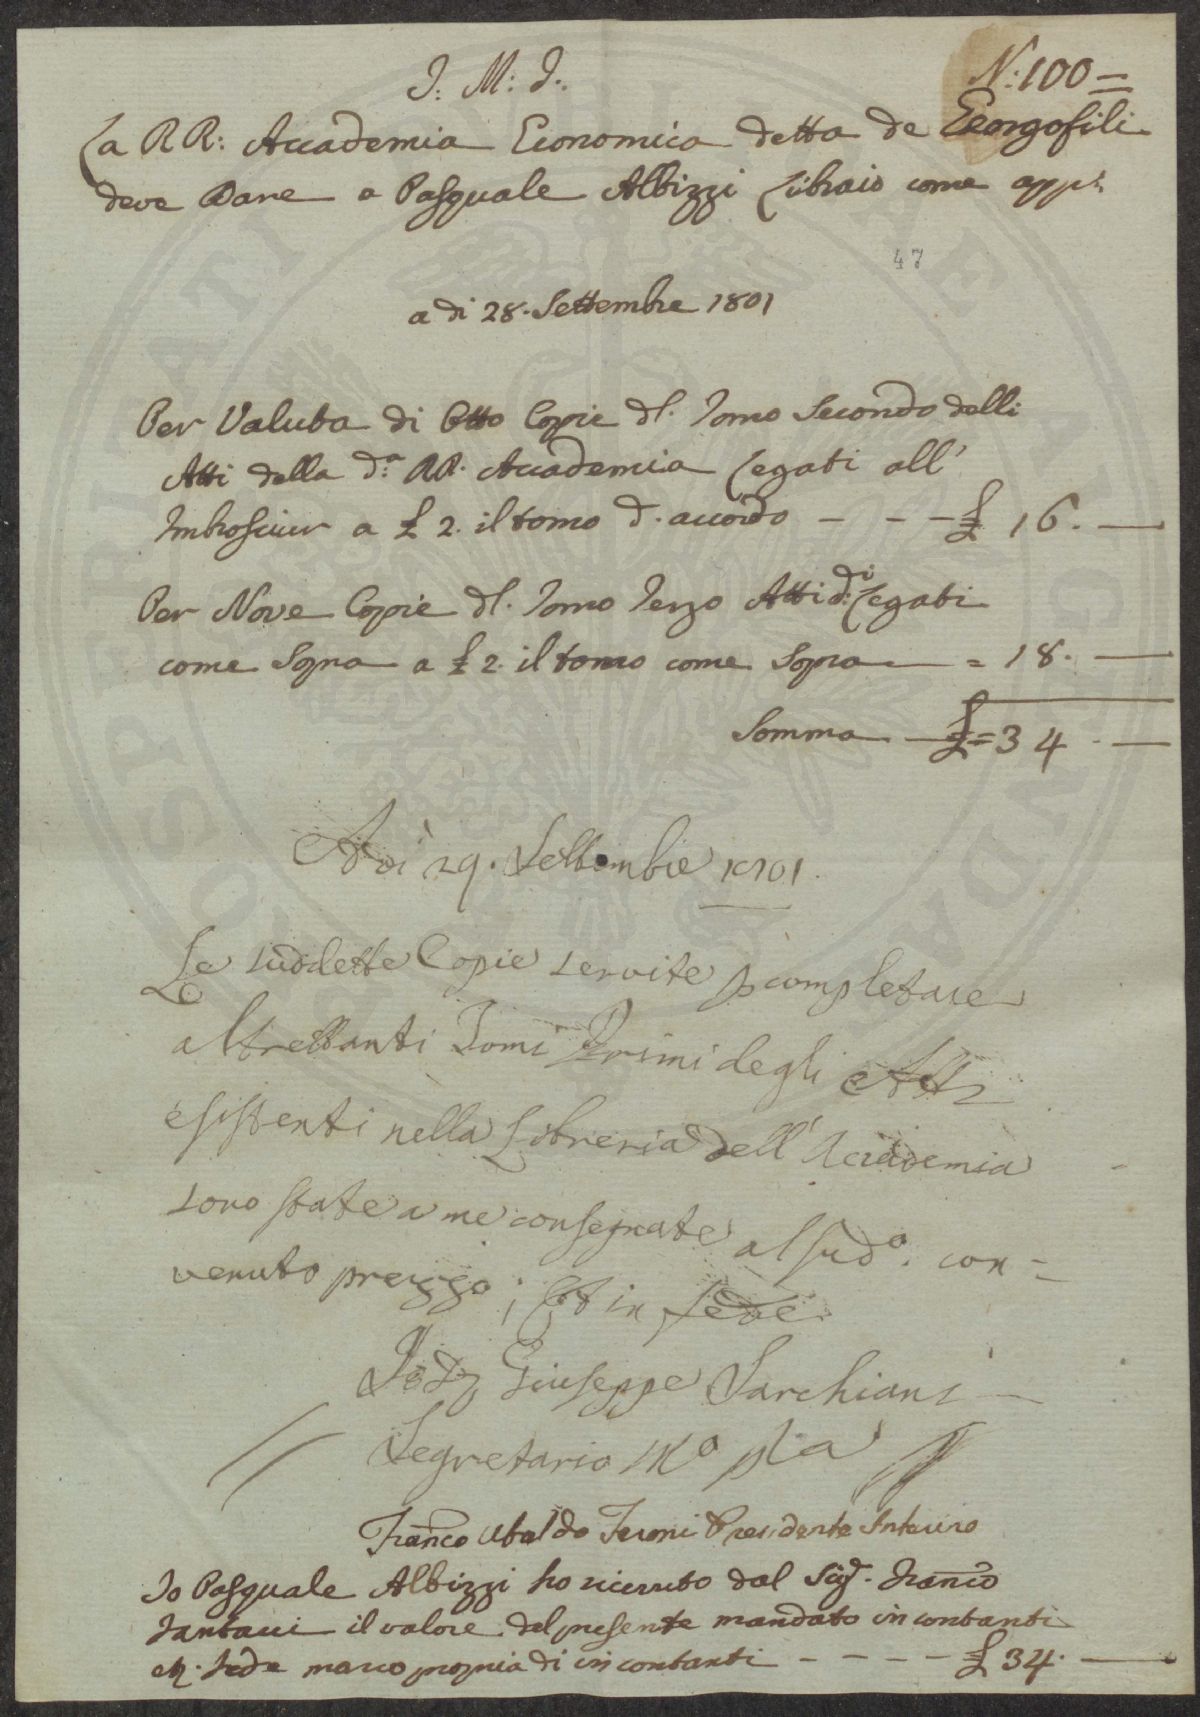 J. M. J.
N: 100
La RR: Accademia Economica detta de Georgofili
deve Dare a Pasquale Albizzi Libraio come app:
47
a di 28. Settembre 1801
Per Valuta di Otto Copie dl. Tomo Secondo delli
Atti della d:a RR. Accademia Legati all'
a £ 2. il tomo d. accordo - - - £ 16. —
Per Nove Copie dl. Tomo Terzo Atti di Legati
come Sopra a £ 2. il tomo come Sopra — = 18. —
Somma — £ = 34 . —
Adì 29. Settembre 1801.
Le suddette Copie servite p completare
altrettanti Tomi Primi degli Atti
esistenti nella Libreria dell'Accademia
sono state a me consegnate al sud.o con=
venuto prezzo; Et in fede
Giuseppe Sarchiani
Segretario m.o p.a
Franco Ubaldo Feroni Presidente Interino
Io Pasquale Albizzi ho ricevuto dal Sig.r Franco
Tantacci il valore del presente mandato in contanti
fede mano propria di in contanti - - - - £ 34. —